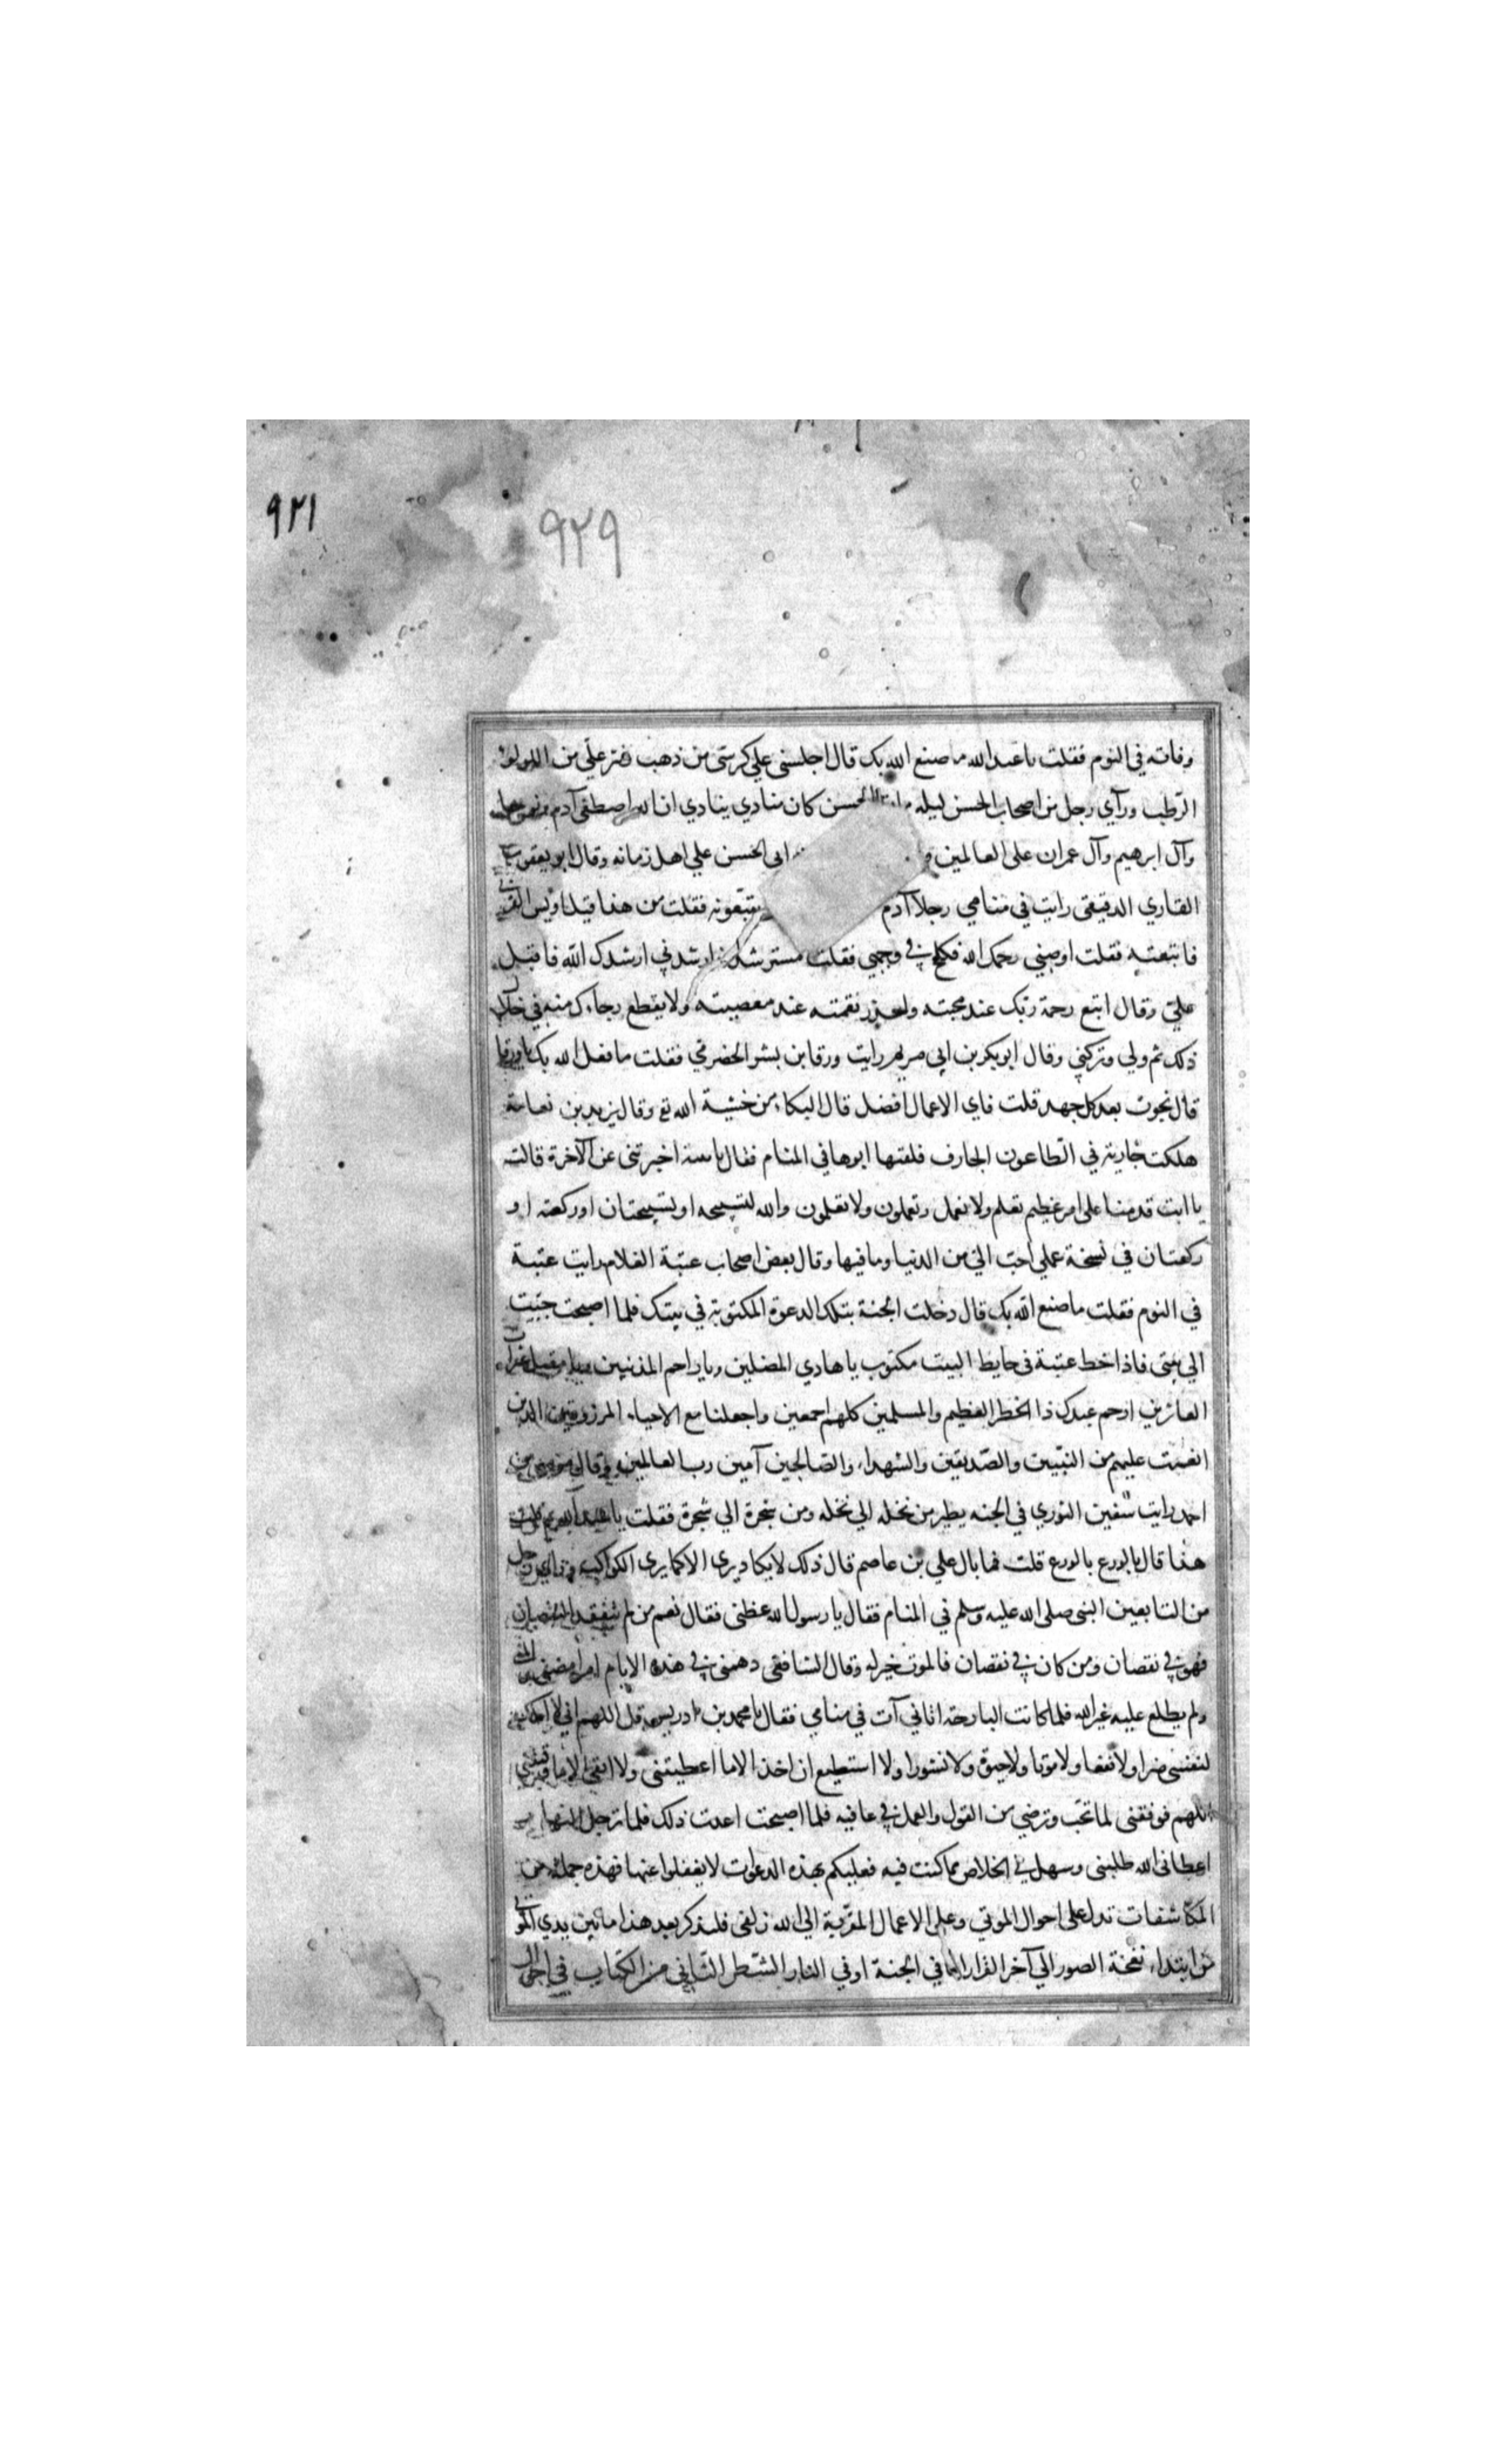 ٩٢١
٩٢٩
وفاته في النوم فقلت يا عبد الله ما صنع الله بك قال اجلسني علي كرسي من ذهب ونثر علّي من اللولوء
الرّطب ورآي رجل من اصحاب الحسن ليله الحسن كان منادي ينادي ان الله اصطفي آدم ونوحا
وآل ابرهيم وآل عمران علي العالمين ابي الحسن علي اهل زمانه وقال ابو يعقوب
القاري الدقيقي رايت في منامي رجلا آدم يتبّعونه فقلت من هذا قيل اويس القرني
فاتبعته فقلت اوصني رحمك الله فكلح في وجهي فقلت مسترشد ارشدني ارشدك الله فاقبل
علّي وقال ابتع رحمة ربك عند محبته واحذر نقمته عند معصيته ولا يقطع رجاءك منه في خلال
ذلك ثم ولي وتركني وقال ابو بكر بن ابي مريم رايت ورقا بن بشر الحضرمي فقلت ما فعل الله بك يا ورقا
قال نجوت بعد كل جهد قلت فاي الاعمال افضل قال البكاء من خشية الله تع وقال يزيد بن نعامة
هلكت جارية في الطاعون الجارف فلقتها ابوها في المنام فقال يا بنية اخبرتني عن الآخرة قالت
يا ابت قدمنا علي امر عظيم نعلم ولا نعمل وتعملون ولا تعلمون والله لتسبيحه او تسبيحتان او ركعة او
ركعتان في نسخة عملي احبّ الي من الدنيا وما فيها وقال بعض اصحاب عتبة الغلام رايت عتبة
في النوم فقلت ما صنع الله بك قال دخلت الجنة بتلك الدعوة المكتوبة في بيتك فلما اصبحت جئيت
الي بيتي فاذا خط عتبة في حايط البيت مكتوب يا هادي المضلين ويا راحم المذنبين ويا مقيل عثرات
العاثرين ارحم عبدك ذا الخطر العظيم والمسلمين كلهم اجمعين واجعلنا مع الاحياء المرزوقين الذين
انعمت عليهم من النبّيين والصّديقين والشهداء والصّالحين آمين رب العالمين وقال موسي بن
احمد رايت سفين الثوري في الجنه يطير من نخله الي نخله ومن شجرة الي شجرة فقلت يا عبد الله بم نلت
هذا قال بالورع بالورع قلت فما بال علي بن عاصم قال ذلك لا يكاد يري الا كما يري الكواكب وراي رجل
من التابعين النبي صلي الله عليه وسلم في المنام فقال يا رسول الله عظني فقال نعم من لم يتفقد النقصان
فهو في نقصان ومن كان في نقصان فالموت خير له وقال الشافعي دهمني في هذه الايام امر امضني
ولم يطلع عليه غير الله فلما كانت البارحة اتاني آت في منامي فقال يا محمد بن ادريس قل اللهم اني لا املك
لنفسي ضرا ولا نفعا ولا موتا ولا حيوة ولا نشورا ولا استطيع ان اخذ الا ما اعطيتني ولا اتقي الا ما وقيتني
اللهم فوفقني لما تحّب وترضي من القول والعمل في عافيه فلما اصبحت اعدت ذلك فلما ترجل النهار
اعطاني الله طلبتي وسهل لي الخلاص مما كنت فيه فعليكم بهذه الدعوات لا تغفلوا عنها فهذه جملة من
المكاشفات تدل علي احوال الموتي وعلي الاعمال المقّربة الي الله زلفي فلنذكر بعد هذا ما بين يدي الموتي
من ابتداء نفخة الصور الي آخر القرار اما في الجنة او في النار الشّطر الثاني من الكتاب في احوال